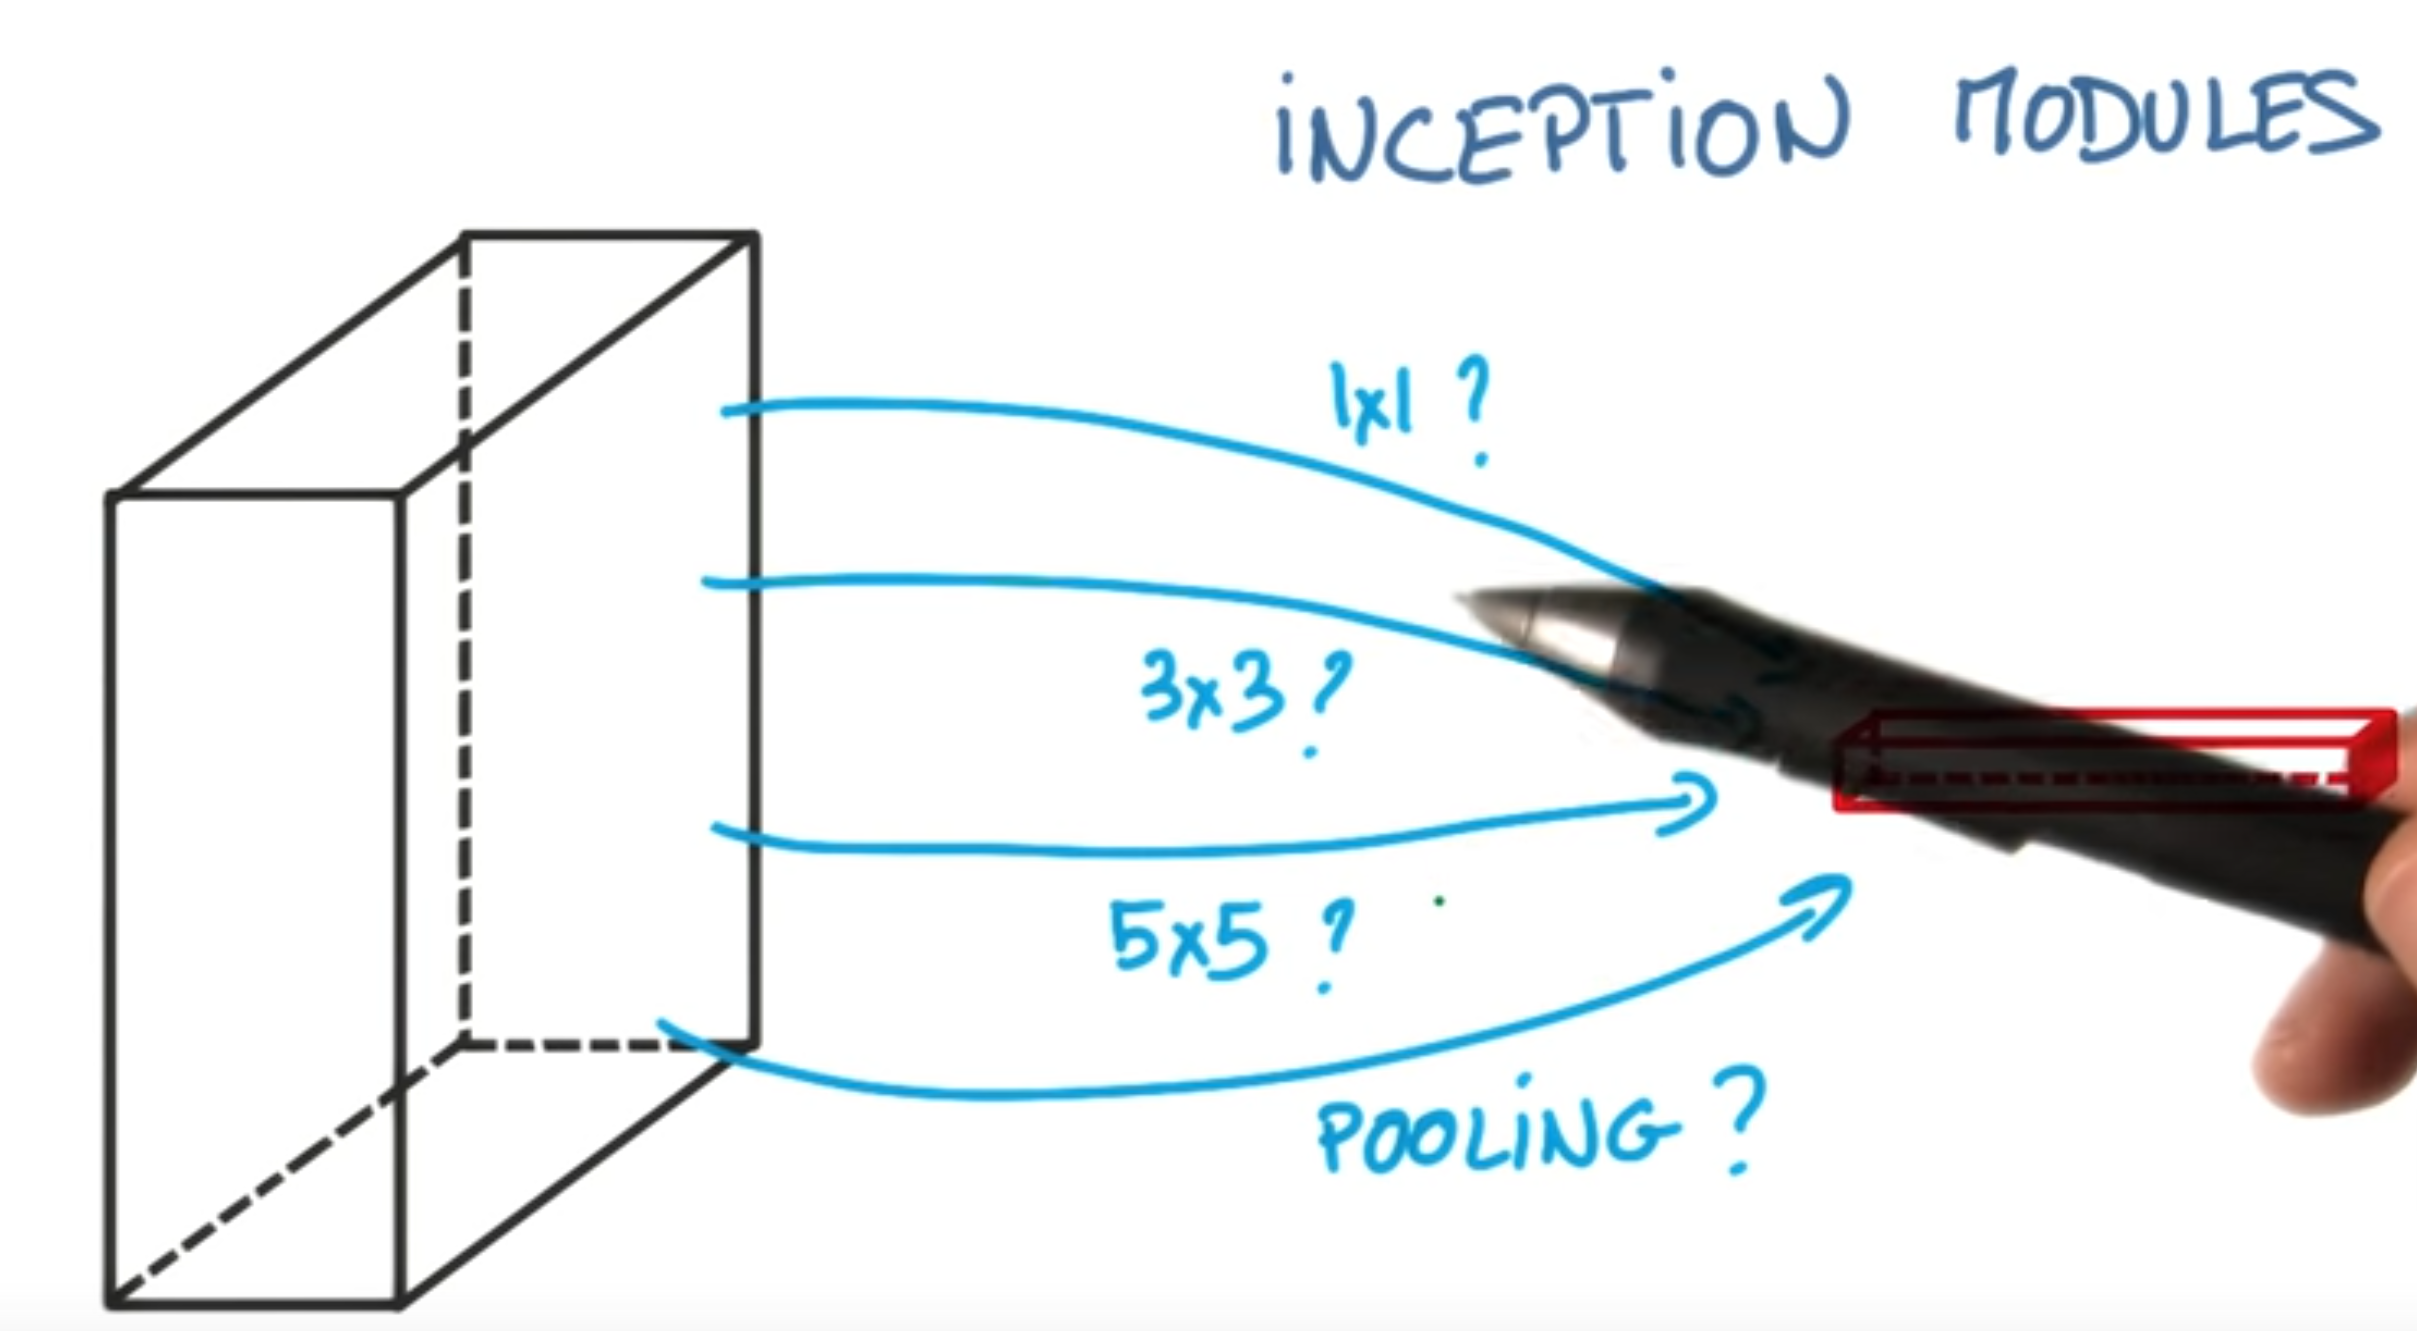 INCEPTION MODULES
1x1 ?
3x3 ?
5x5 ?
POOLING ?